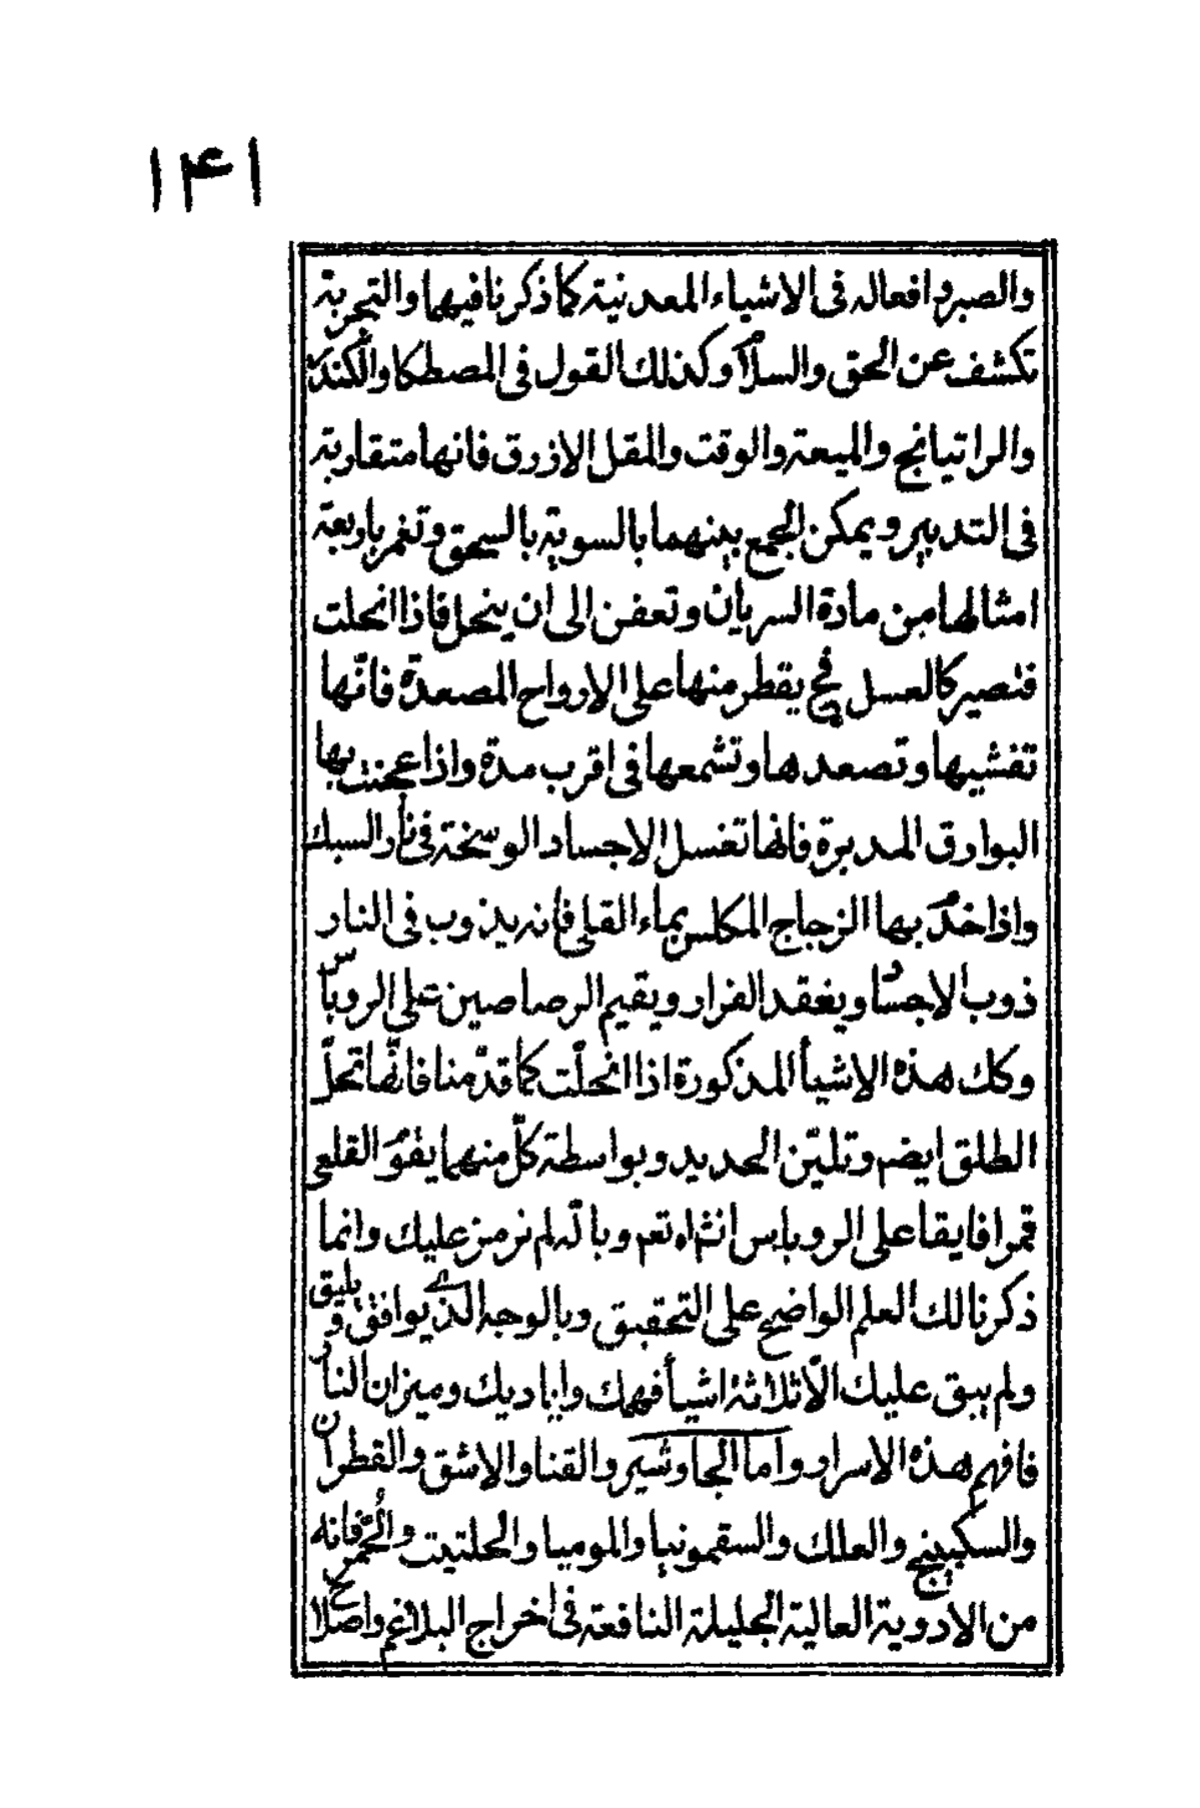 ۱۴۱
والصبر وافعاله فى الاشياء المعدنية كما ذكرنا فيها والتجربة
تكشف عن الحق والسلام وكذلك القول فى المصطكا والكندر
والراتيانج والميعة والوقت والمقل الازرق فانها متقاربة
فى التدبير ويمكن الجمع بينهما بالسوية بالسحق وتغمر باربعة
امثالها من مادة السريان وتعفن الى ان ينحل فاذا انحلت
فتصير كالعسل فح يقطر منها على الارواح المصعدة فانّها
تفشيها وتصعدها وتشمعها فى اقرب مدة واذا عجنت بها
البوارق المدبرة فانها تغسل الاجساد الوسخة فى نار السبك
واذا خدم بها الزجاج المكلس بماء القلى فانه يذوب فى النار
ذوب الاجساد ويعقد الفرار ويقيم الرصاصين على الروباس
وكك هذه الاشيأ المذكورة اذا انحلّت كما قدّمنا فانّها تحلّ
الطلق ايضم وتليّن الحديد وبواسطة كلّ منهما يقوم القلعى
قمرا فايقا على الروباس انشاء تعم وبالّه لم نرمز عليك وانما
ذكرنا لك العلم الواضح على التحقيق وبالوجه الذى يوافق ويليق
ولم يبق عليك الّا ثلاثة اشيأ فهمك وايا ديك وميزان النار
فافهم هذه الاسرار واما الجاوشير والقنا والاشق والقطران
والسكبينج والعلك والسقمونيا والموميا والحلتيت والخمر فانه
من الادوية العالية الجليلة النافعة فى اخراج البلاغم واصلاح